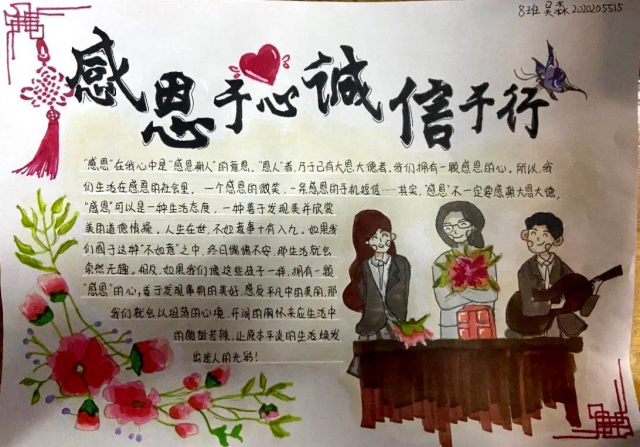 8班 吴森 2020205515
感恩于心 诚信于行
"感恩"在我心中是"感恩谢人"的意思,"恩人"者,乃于己有大恩大德者。我们拥有一颗感恩的心。所以,我
们生活在感恩的社会里,一个感恩的微笑,一条感恩的手机短信……其实,"感恩"不一定要感谢大恩大德,
"感恩"可以是一种生活态度,一种善于发现美并欣赏
美的道德情操。人生在世,不如意事十有八九。如果我
们囿于这种"不如意"之中,终日惴惴不安,那生活就会
索然无趣。相反,如果我们像这些孩子一样,拥有一颗
"感恩"的心,善于发现事物的美好,感受平凡中的美丽,那
我们就会以坦荡的心境、开阔的胸怀来应生活中
的酸甜苦辣,让原本平淡的生活焕发
出迷人的光彩!